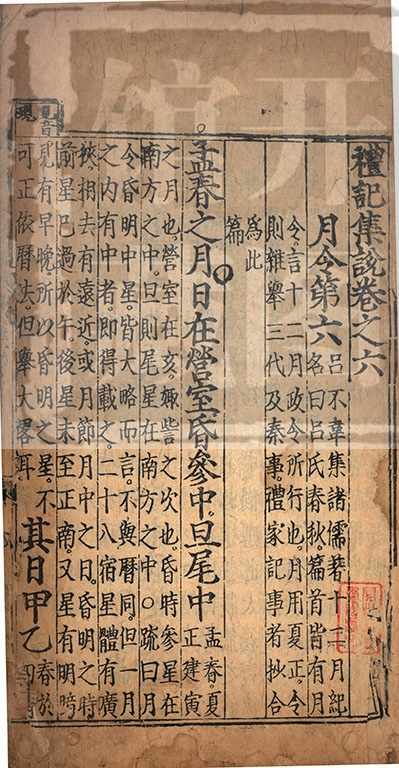 禮記集說卷之六
月令第六
呂不韋集諸儒著十二月紀
名曰呂氏春秋篇首皆有月
令言十二月政令所行也月用夏正令
則雜舉三代及秦事禮家記事者抄合
爲此
篇
孟春之月日在營室昏參中旦尾中
孟春夏
正建寅
之月也營室在亥娵訾之次也昏時參星在
南方之中旦則尾星在南方之中○疏曰月
令昏明中星皆大略而言不與曆同但一月
之內有中者即得載之二十八宿星體有廣
狹相去有遠近或月節月中之日昏明之時
前星已過於午後星未至正南又星有明暗
見有早晚所以昏明之星不
可正依曆法但舉大畧耳
其日甲乙
春於
見音
現